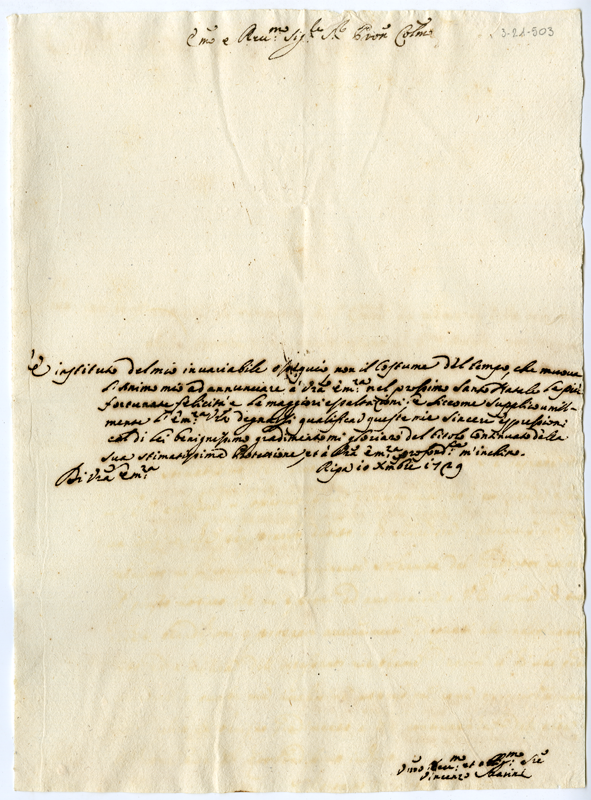 Emo e Reu:mo Sig:re Sre Pron Colmo
3-21-503
È instituto del mio inuariabile ossequio non il Costume del tempo, che muoue
l'Animo mio ad annunciare à Vra Em:za nel prossimo Santo Natale le più
fortunate felicità e le maggiori esaltazioni: e Siccome Supplico umil-
mente l'Em:za Vra degnarsi qualificar queste mie Sincere espressioni
col di lei benignissimo gradimento mi del titolo Continuato della
sua stimatissima Protezione et à Vra Em:za profond:te m'inchino.
Di Vra Em:za
Riga 10 Xmbre 1729
Vmo et Sre
Vincenzo